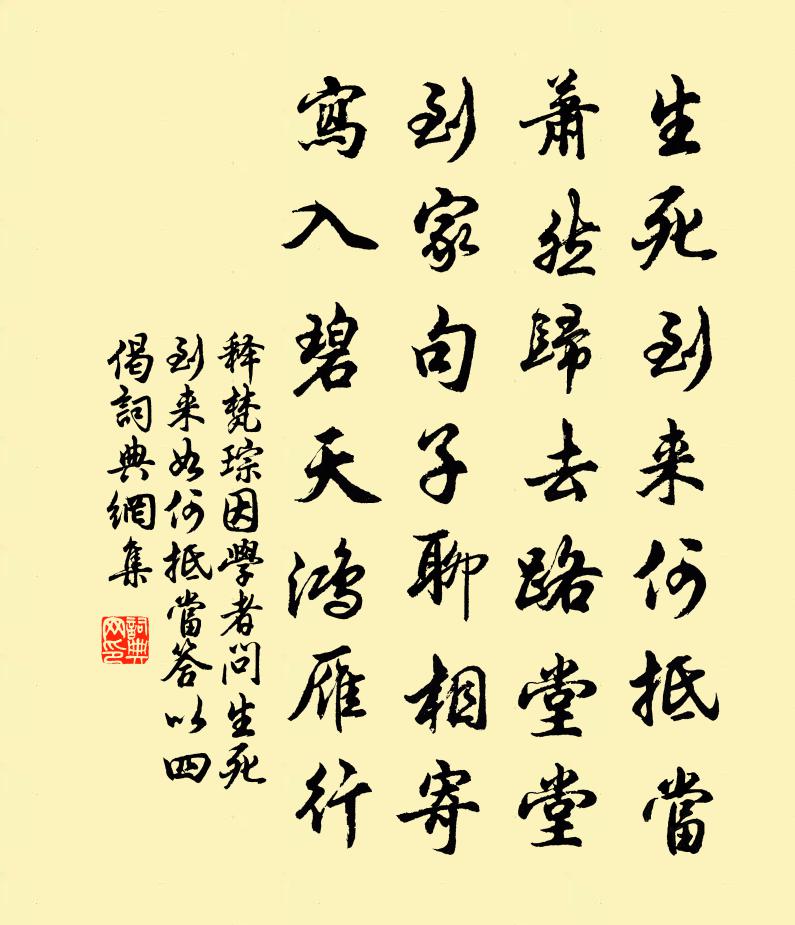 生死到来何抵當
蕭然歸去路堂堂
到家句子聊相寄
寫入碧天鴻雁行
释梵琮因學者問生死
到来如何抵當答以四
偈詞典網集
詞典网印